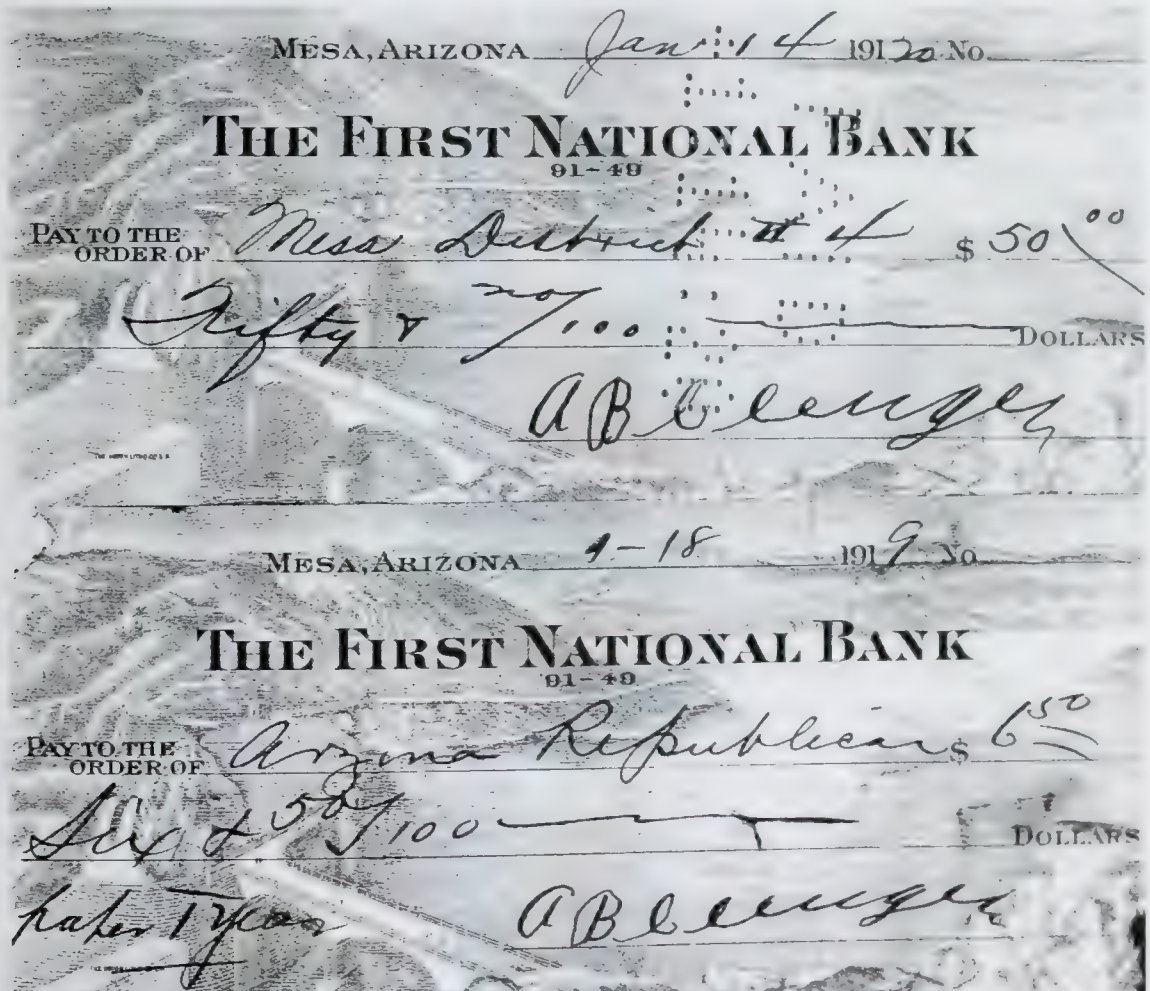 MESA, ARIZONA Jan 14 191 20 No.
THE FIRST NATIONAL BANK
91-49
PAY TO THE
ORDER OF Mesa District # 4 $ 50 00
Fifty & no/100 DOLLARS
A B Clenger
MESA, ARIZONA 1-18 1919 No.
THE FIRST NATIONAL BANK
91-49
PAY TO THE
ORDER OF Arizona Republican $ 6 50
Six & 50/100 DOLLARS
paper 1 year A B Clenger